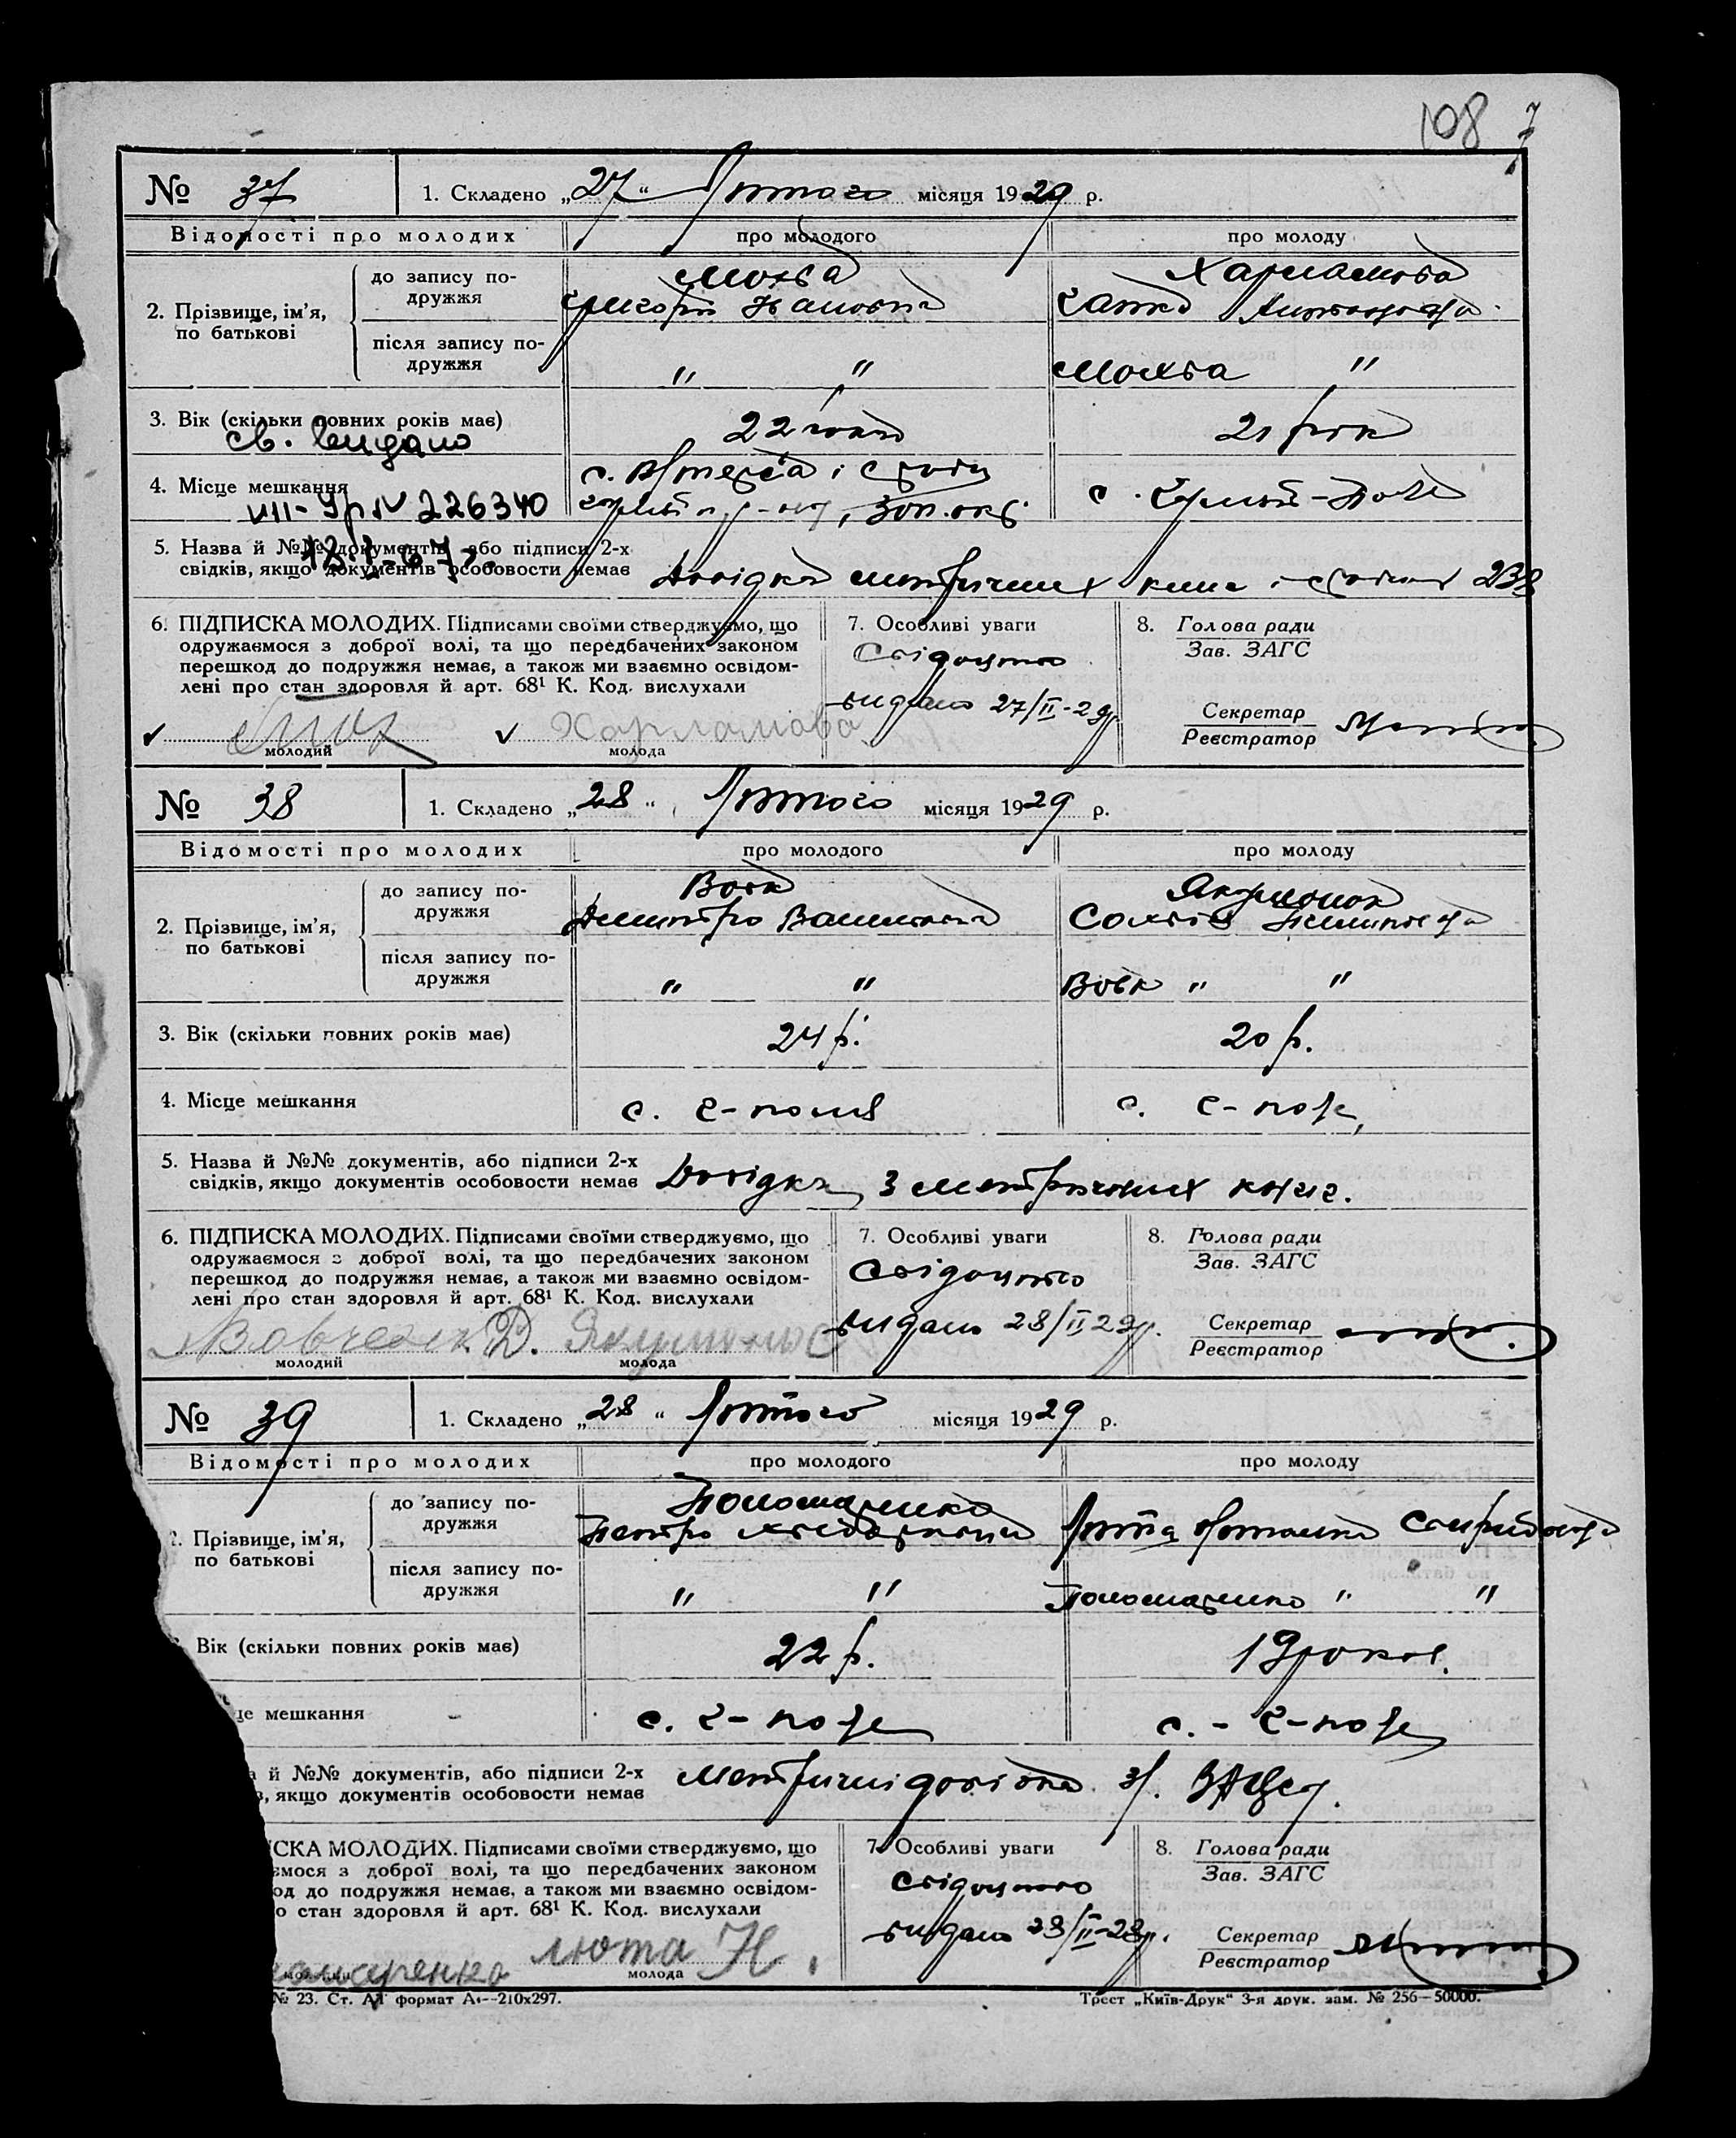 108
№ 37 1. Складено „27“ Лютого місяця 1929 р.
Відомості про молодих про молодого про молоду
2. Прізвище, ім'я, по батькові
до запису подружжя
Мохва
Харламова
після запису подружжя
" "
Мохва "
3. Вік (скільки повних років має) 22 роки 21 рік
св. видано
4. Місце мешкання
с. Гуляй-Поле
VIII-УР № 226340
5. Назва й №№ документів, або підписи 2-х
свідків, якщо документів особовости немає Довідка метричних книг
6. ПІДПИСКА МОЛОДИХ. Підписами своїми стверджуємо, що
одружаємося з доброї волі, та що передбачених законом
перешкод до подружжя немає, а також ми взаємно освідом-
лені про стан здоровля й арт. 68¹ К. Код. вислухали
Харламова
молодий молода
7. Особливі уваги
Свідоцтво
видано 27/II-29р.
8. Голова ради
Зав. ЗАГС
Секретар
Реєстратор
№ 38 1. Складено „28“ Лютого місяця 1929 р.
Відомості про молодих про молодого про молоду
2. Прізвище, ім'я, по батькові
до запису подружжя
Вовк
Дмитро Васильович
після запису подружжя
" "
Вовк " "
3. Вік (скільки повних років має) 24 р. 20 р.
4. Місце мешкання с. Г-поля с. Г-поле,
5. Назва й №№ документів, або підписи 2-х
свідків, якщо документів особовости немає Довідка з метричних книг.
6. ПІДПИСКА МОЛОДИХ. Підписами своїми стверджуємо, що
одружаємося з доброї волі, та що передбачених законом
перешкод до подружжя немає, а також ми взаємно освідом-
лені про стан здоровля й арт. 68¹ К. Код. вислухали
молодий молода
7. Особливі уваги
Свідоцтво
видано 28/II 29р.
8. Голова ради
Зав. ЗАГС
Секретар
Реєстратор
№ 39 1. Складено „28“ Лютого місяця 1929 р.
Відомості про молодих про молодого про молоду
Прізвище, ім'я, по батькові
до запису подружжя
Пономаренко
Петро
Люта
після запису подружжя
" "
Пономаренко " "
Вік (скільки повних років має) 22 р. 19 років.
це мешкання с. Г-поле с. - Г-поле
й №№ документів, або підписи 2-х
якщо документів особовости немає Метричні довідки
СКА МОЛОДИХ. Підписами своїми стверджуємо, що
ємося з доброї волі, та що передбачених законом
од до подружжя немає, а також ми взаємно освідом-
о стан здоровля й арт. 68¹ К. Код. вислухали
люта Н.
молода
7. Особливі уваги
Свідоцтво
видано 28/II-29р.
8. Голова ради
Зав. ЗАГС
Секретар
Реєстратор
№ 23. Ст. формат А₄--210x297.
Трест „Київ-Друк“ 3-я друк. зам. № 256—50000.